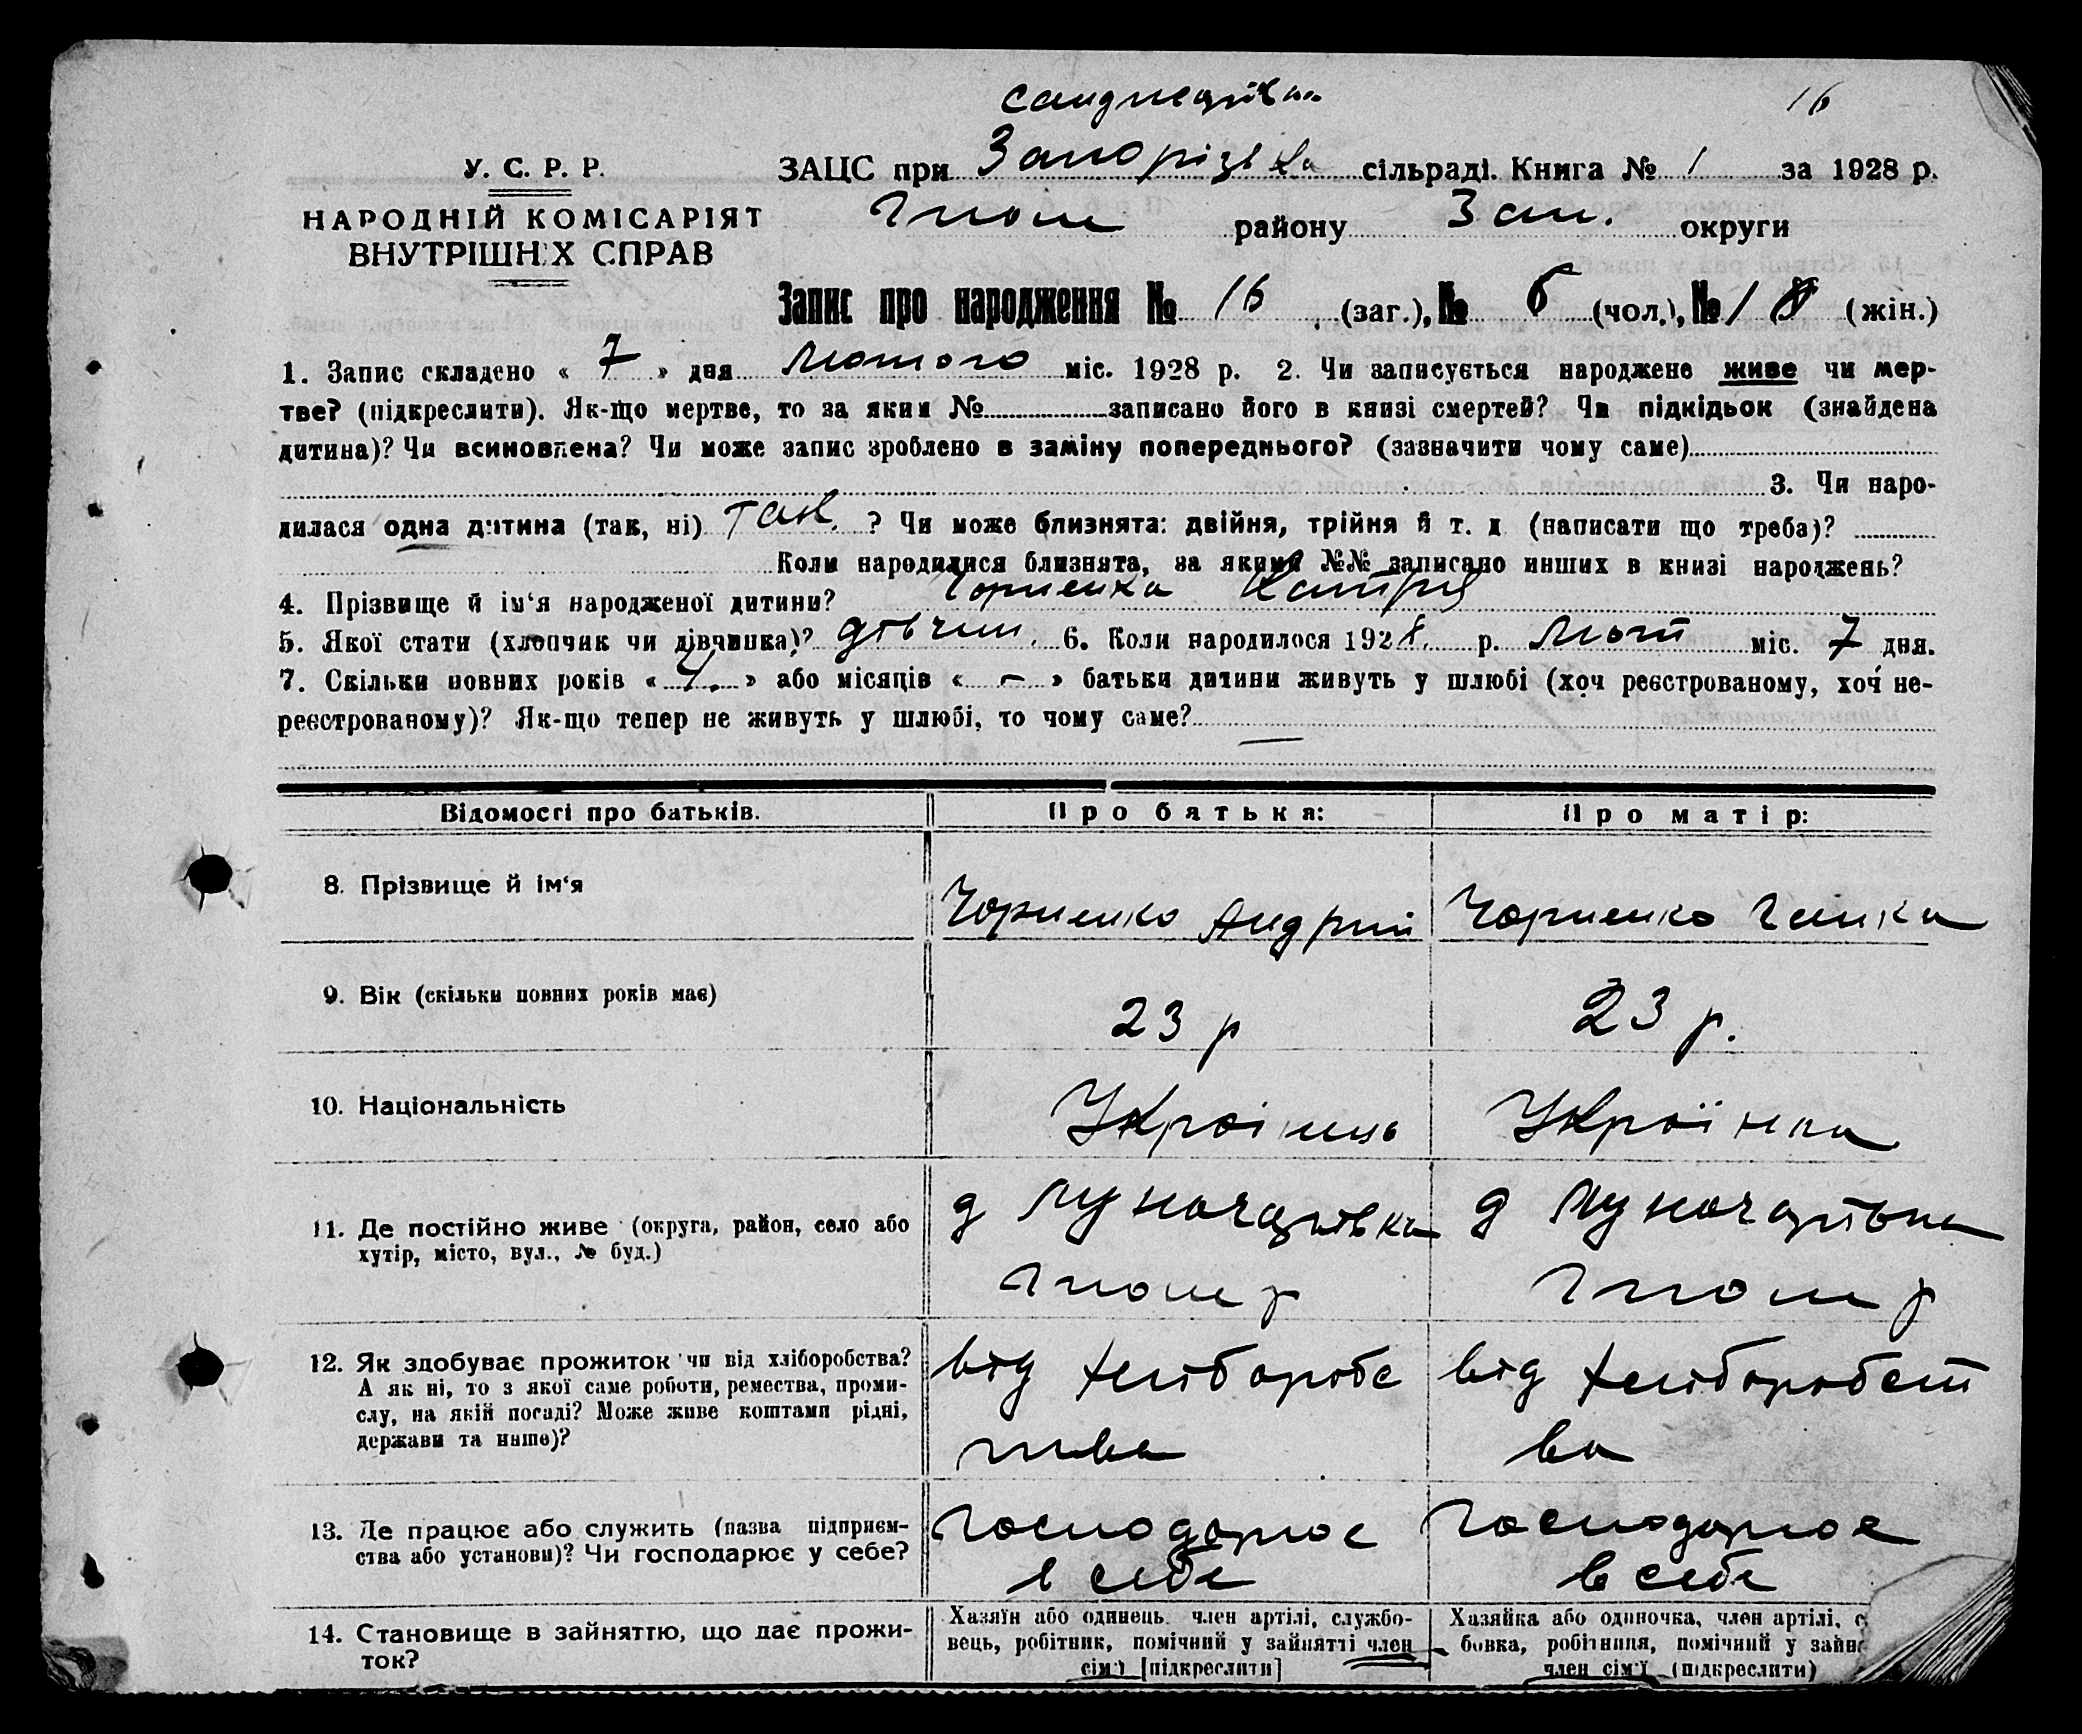 16
У. С. Р. Р.
НАРОДНІЙ КОМІСАРІЯТ
ВНУТРІШНІХ СПРАВ
ЗАЦС при сільраді. Книга № 1 за 1928 р.
району Зап. округи
Запис про народження № 16 (заг.), № 6 (чол.), № (жін.)
1. Запис складено « 7 » дня Лютого міс. 1928 р. 2. Чи записується народжене живе чи мер-
тве? (підкреслити). Як-що мертве, то за яким № записано його в книзі смертей? Чи підкідьок (знайдена
дитина)? Чи всиновлена? Чи може запис зроблено в заміну попереднього? (зазначити чому саме)
3. Чи наро-
дилася одна дитина (так, ні) так. ? Чи може близнята: двійня, трійня й т. д (написати що треба)?
Коли народилися близнята, за якими №№ записано инших в книзі народжень?
4. Прізвище й ім‘я народженої дитини? Чорненко Катря
5. Якої стати (хлопчик чи дівчинка)? дівчин. 6. Коли народилося 1928. р. Лют міс. 7 дня.
7. Скільки повних років « » або місяців « – » батьки дитини живуть у шлюбі (хоч реєстрованому, хоч не-
реєстрованому)? Як-що тепер не живуть у шлюбі, то чому саме? —
Відомості про батьків. Про батька: Про матір:
8. Прізвище й ім‘я Чорненко Андрій Чорненко Ганка
9. Вік (скільки повних років має) 23 р 23 р.
10. Національність Україєнць Українка
11. Де постійно живе (округа, район, село або
хутір, місто, вул., № буд.)
д Луначарівка д Луначарівка
р р
12. Як здобуває прожиток чи від хліборобства?
А як ні, то з якої саме роботи, ремества, проми-
слу, на якій посаді? Може живе коштами рідні,
держави та инше)?
від хліборобс від хліборобст
тва ва
13. Де працює або служить (назва підприєм-
ства або установи)? Чи господарює у себе?
Господарює Господарює
в себе в себе
14. Становище в зайняттю, що дає прожи-
ток?
Хазяїн або одинець, член артілі, службо-
вець, робітник, помічний у зайнятті член
сім‘ї [підкреслити]
Хазяйка або одиночка, член артілі, с
бовка, робітниця, помічний у зайн
член сім‘ї (підкреслити)